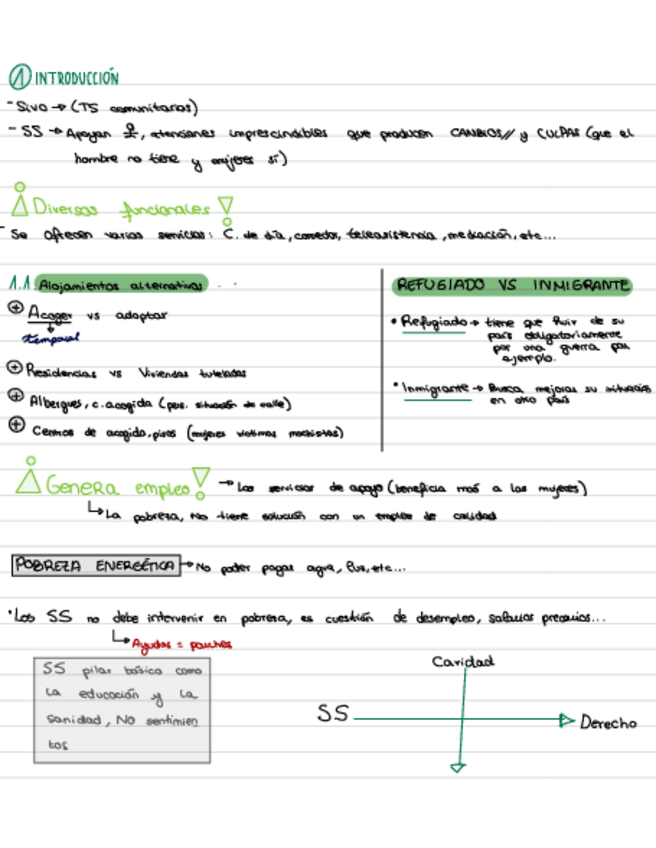 ① INTRODUCCIÓN
- Sivo → (TS comunitarios)
- SS → Apoyan, atenciones imprescindibles que producen CAMBIOS// y CULPAS (que el
hombre no tiene y mujeres sí)
¡Diversos funcionales!
Se ofrecen varios servicios: C. de día, comedor, teleasistencia, mediación, etc...
1.1. Alojamientos alternativos
⊕ Acoger vs adoptar
↓
temporal
⊕ Residencias vs Viviendas tuteladas
⊕ Albergues, c. acogida (pers. situación de calle)
⊕ Centros de acogida, pisos (mujeres víctimas machistas)
REFUGIADO VS INMIGRANTE
• Refugiado → tiene que huir de su
país obligatoriamente
por una guerra por
ejemplo.
• Inmigrante → Busca mejorar su situación
en otro país
¡Genera empleo! → Los servicios de apoyo (beneficia más a las mujeres)
↳ La pobreza, No tiene solución con un empleo de calidad
POBREZA ENERGÉTICA → No poder pagar agua, luz, etc...
• Los SS no debe intervenir en pobreza, es cuestión de desempleo, salarios precarios...
↳ Ayudas = parches
SS pilar básico como
la educación y la
sanidad, No sentimien
tos
Caridad
SS
Derecho